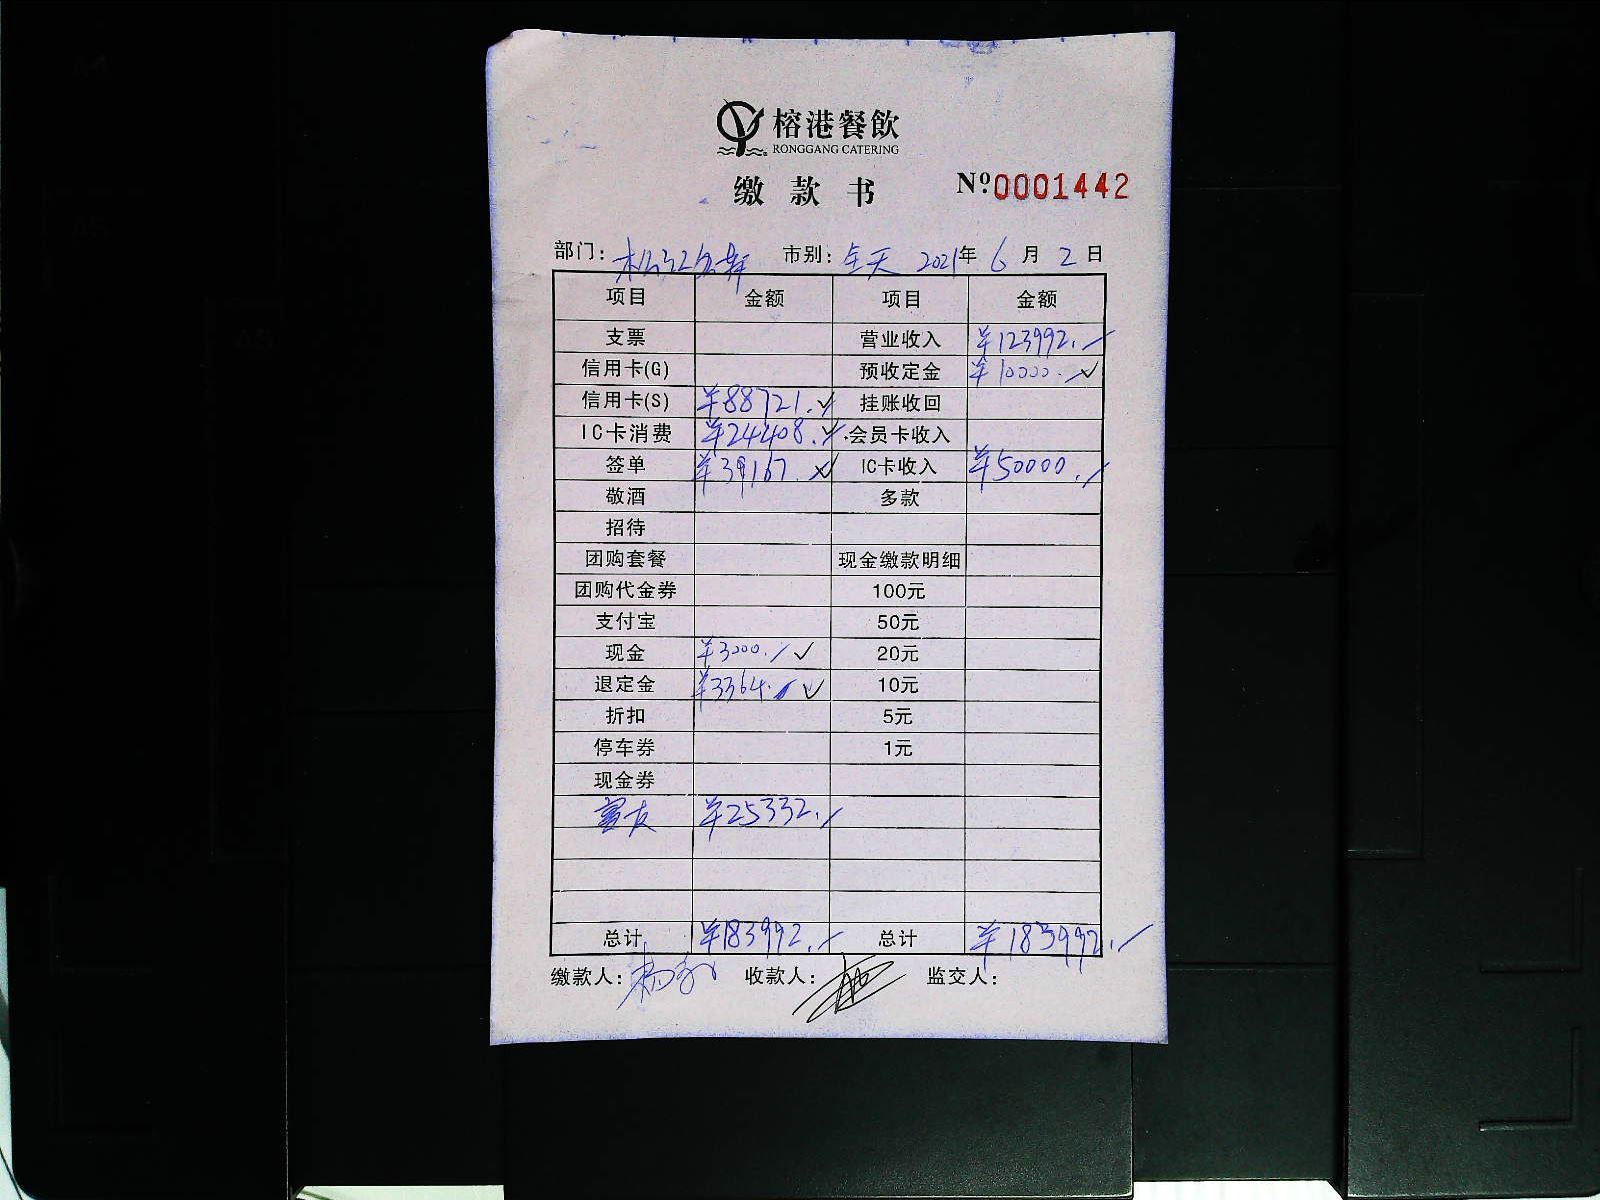 榕港餐飲
RONGGANG CATERING
缴款书 Nº0001442
部门: 市别: 全天 2021年 6 月 2 日
项目 金额 项目 金额
支票 营业收入 ¥123992.
信用卡(G) 预收定金 ¥10000.
信用卡(S) ¥88721. 挂账收回
IC卡消费 ¥24408. 会员卡收入
签单 ¥39167. IC卡收入 ¥50000.
敬酒 多款
招待
团购套餐 现金缴款明细
团购代金券 100元
支付宝 50元
现金 ¥3000. 20元
退定金 ¥3364. 10元
折扣 5元
停车券 1元
现金券
¥25332.
总计 ¥183992. 总计 ¥183992.
缴款人: 收款人: 监交人: